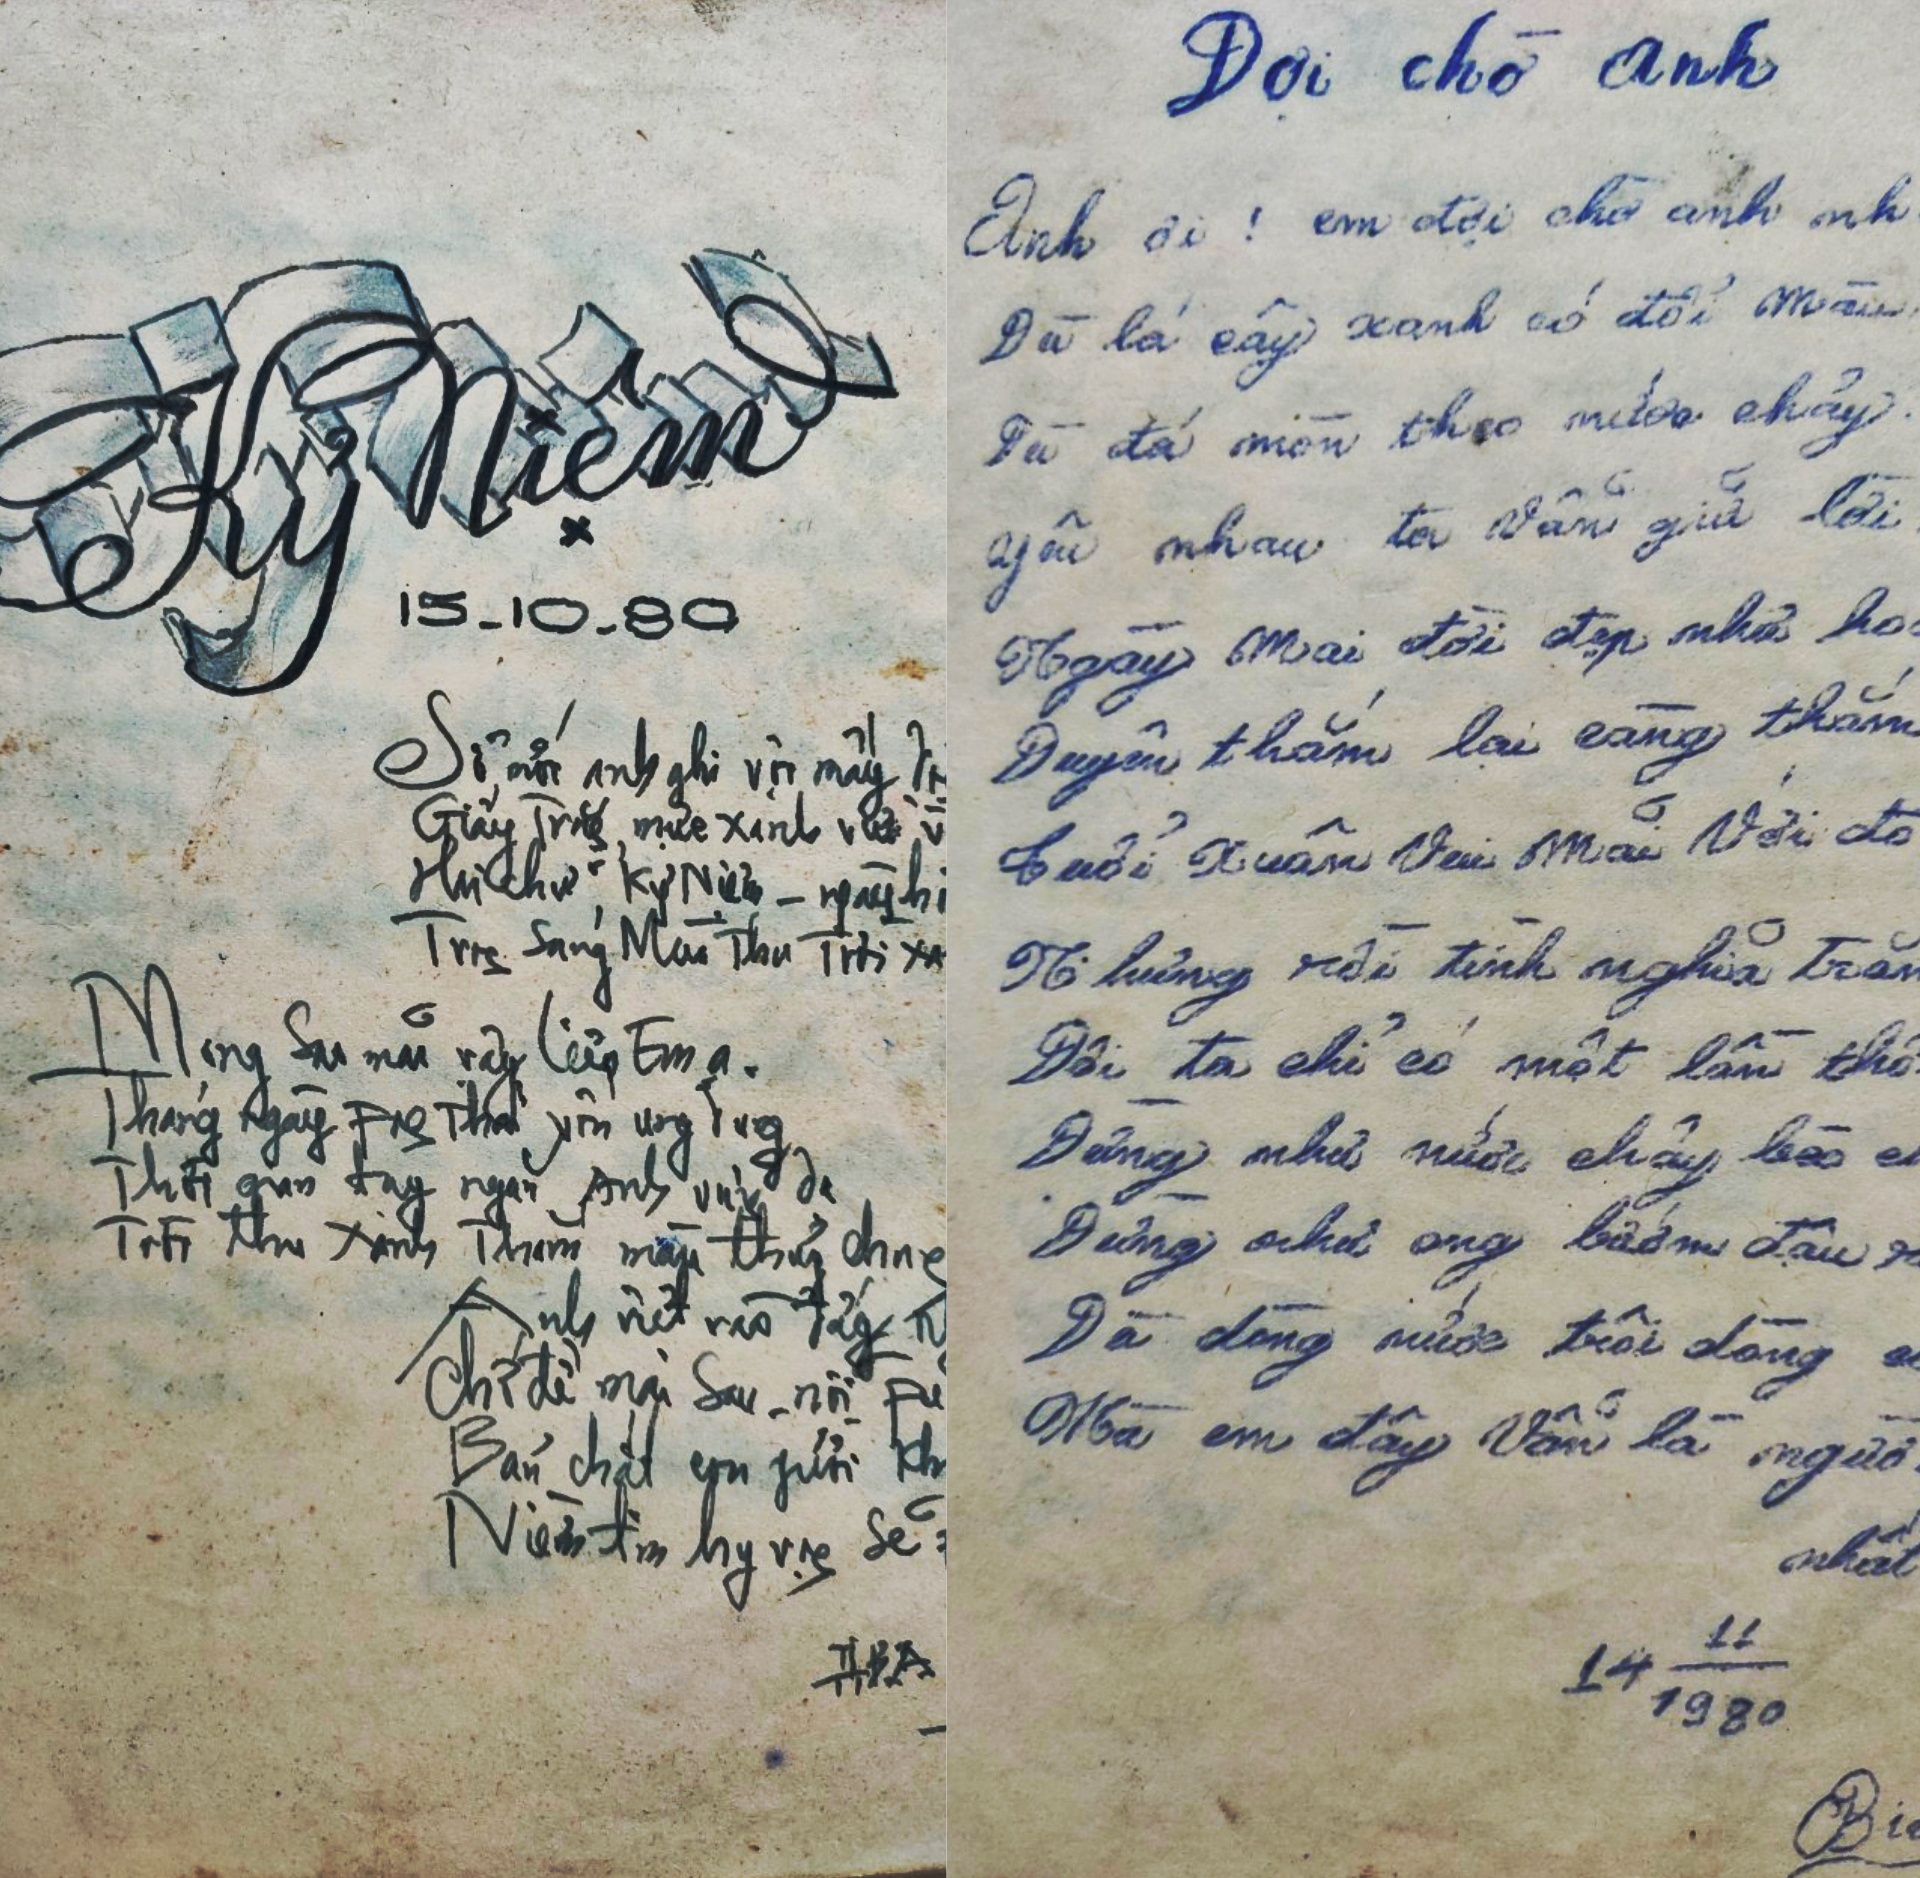 Kỷ Niệm
15-10-80
Sổ mới anh ghi vội mấy
Giấy Trắng mực xanh
Hai chữ "Kỷ Niệm - ngày
Trong Sáng Mùa Thu Trời
Mong Sao mãi vậy Em ạ.
Tháng ngày ung dung
Thời gian tuy ngắn Anh
Trời thu xanh Thắm màu thủy chung
Anh viết vào đây
Chỉ để mai Sau - nối
Bản chất em gửi
Niềm tin hy vọng Sẽ
Đợi chờ anh
Anh ơi ! em đợi chờ anh nh
Dù lá cây xanh có đổi màu
Dù đá mòn theo nước chảy.
Yêu nhau ta vẫn giữ lời
Ngày mai đời đẹp như ho
Duyên thắm lại càng thắm
Tuổi Xuân Vui Mãi Với đờ
Nhưng rồi tình nghĩa trăm
Đôi ta chỉ có một lần thô
Đừng như nước chảy bèo
Đừng như ong bướm đậu
Dù dòng nước trôi dòng
Mà em đây vẫn là người
nhất
14 11
1980